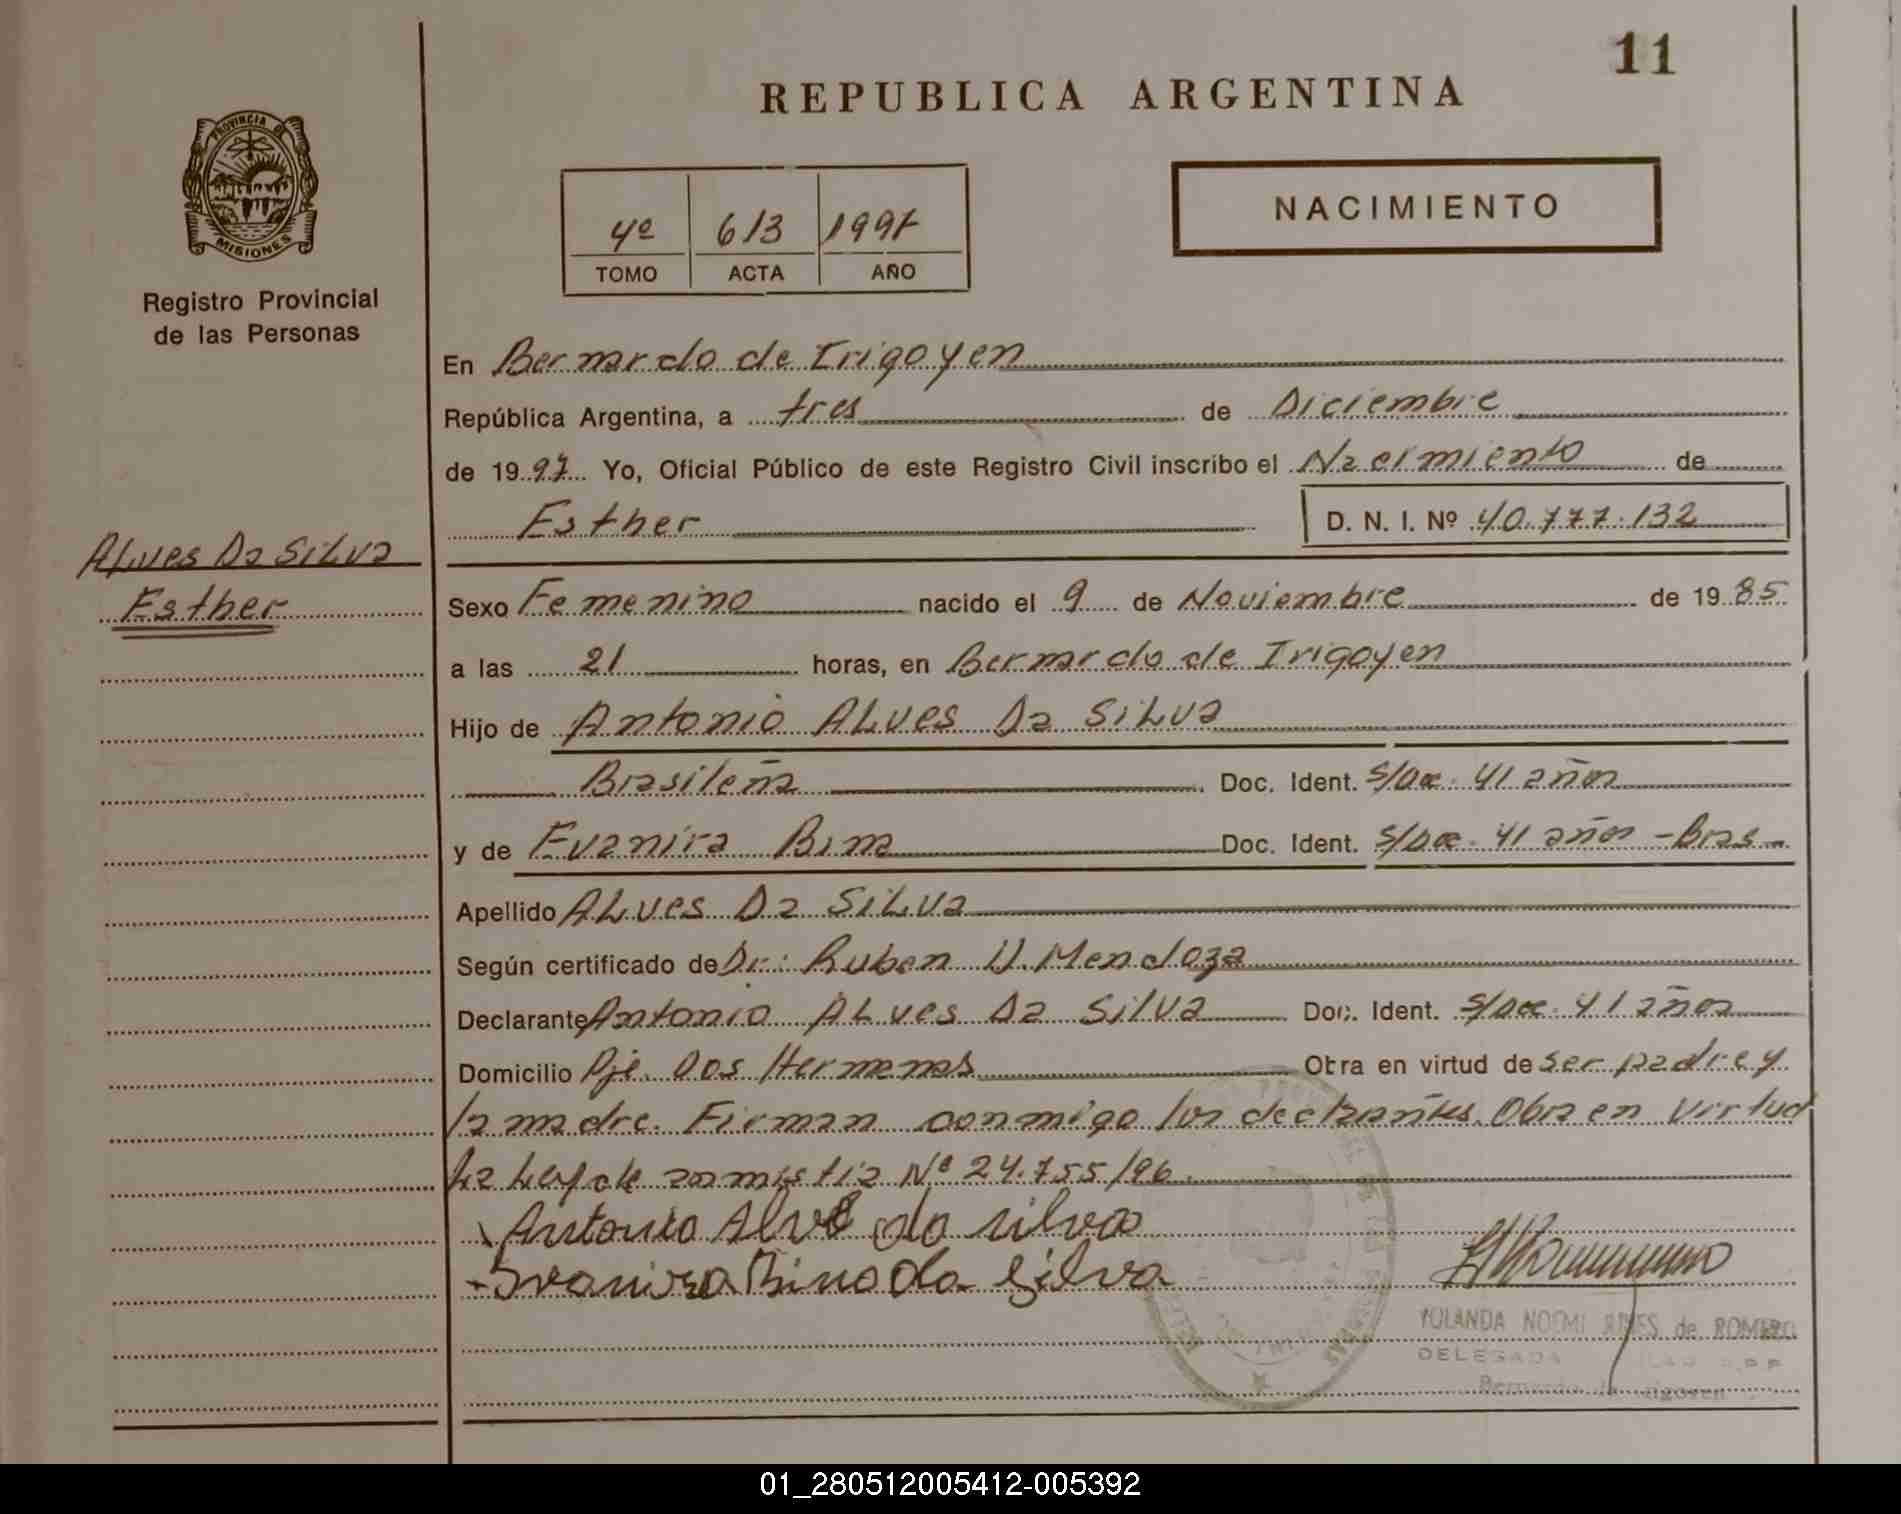 11
REPUBLICA ARGENTINA
PROVINCIA DE
MISIONES
Registro Provincial
de las Personas
4º 613 1997
TOMO ACTA AÑO
NACIMIENTO
En Bernardo de Irigoyen
República Argentina, a tres de Diciembre
de 1997 Yo, Oficial Público de este Registro Civil inscribo el Nacimiento de
Esther D. N. I. Nº 40.777.132
ALves Da SiLva
Esther
Sexo Femenino nacido el 9 de Noviembre de 1985
a las 21 horas, en Bernardo de Irigoyen
Hijo de Antonio ALves Da SiLva
Brasileña Doc. Ident. S/Doc. 41 años
y de Evanira Bino Doc. Ident. S/Doc. 41 años - Bras-
Apellido ALves Da SiLva
Según certificado de Dr: Ruben U. Mendoza
Declarante Antonio ALves Da SilVa Doc. Ident. S/Doc. 41 años
Domicilio Pje. Dos Hermanas Obra en virtud de ser padre y
la madre. Firman conmigo los declarantes. Obra en virtud
La Ley de Nº 24.755/96
Antonio Alve da silva
Ivanira Bino da Silva
YOLANDA NOEMI de ROMERO
DELEGADA
Bernardo de Irigoyen
01_280512005412-005392